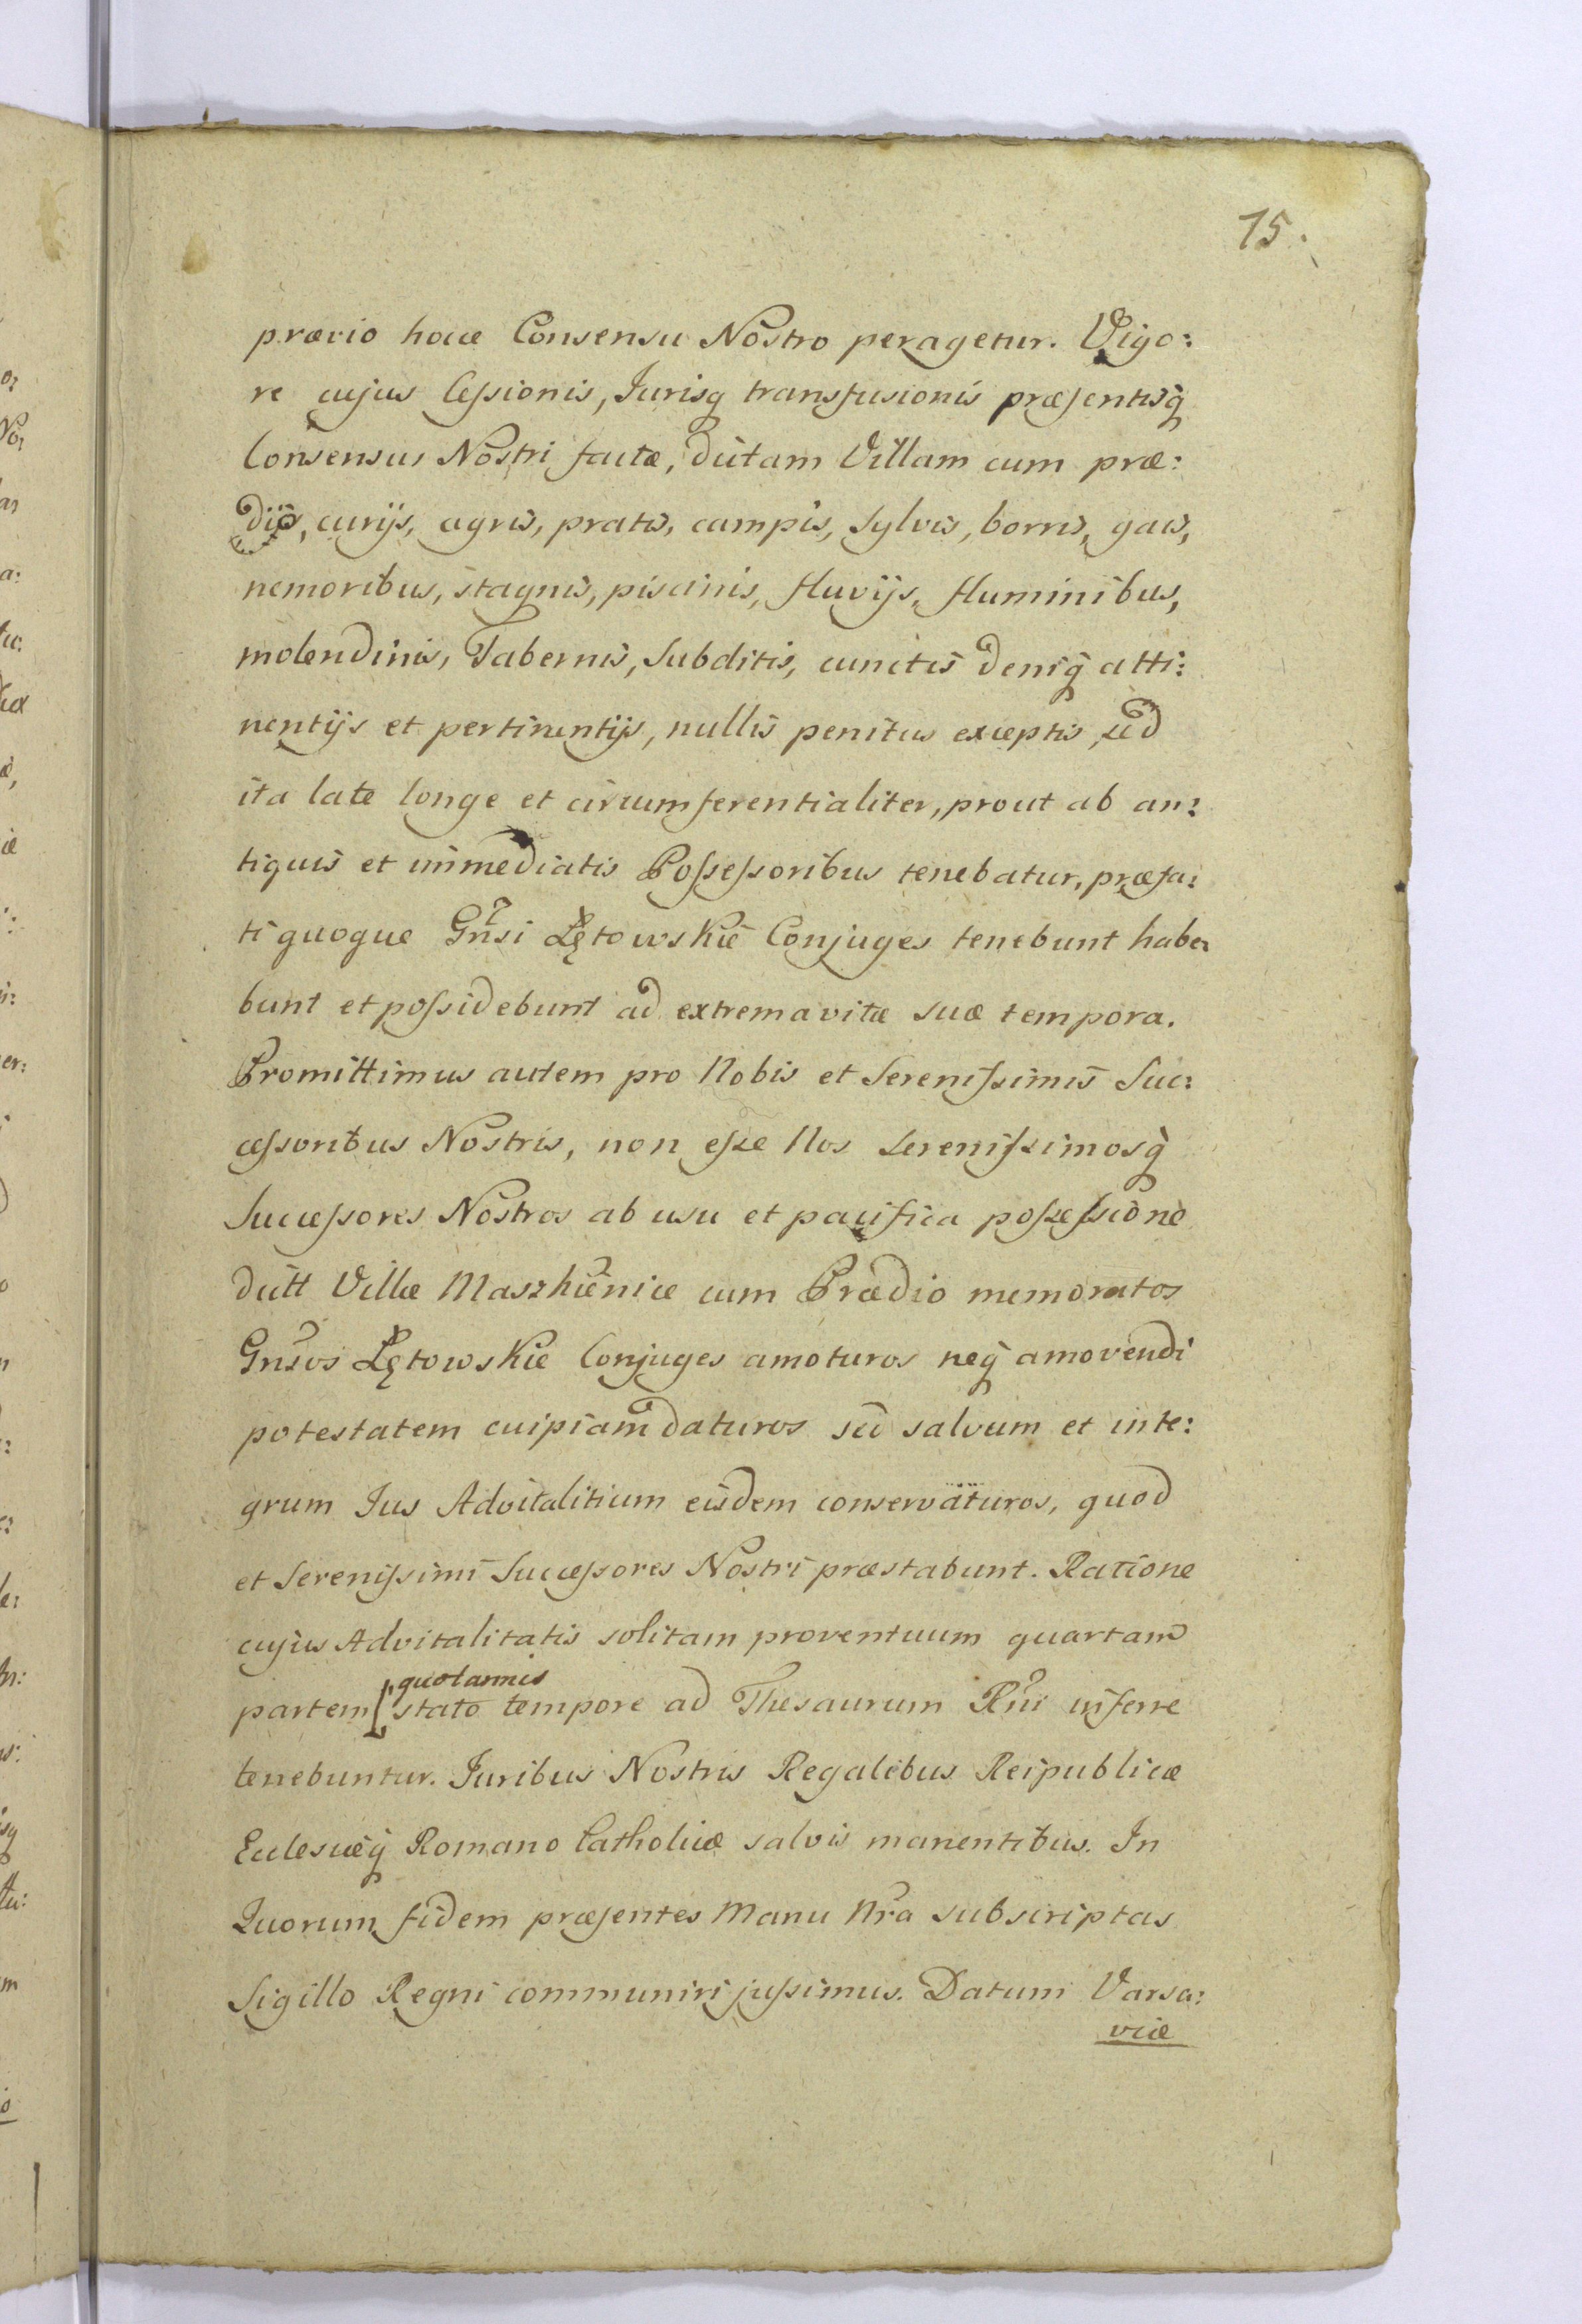 15.
prævio hocce Consensu Nostro peragetur. Vigo:
re cujus Cessionis, Jurisq̃ transfusionis præsentisq̃
Consensus Nostri factæ, dictam Villam cum præ:
dijs, curijs, agris, pratis, campis, sylvis, borris, gais,
nemoribus, stagnis, piscinis, fluvijs, fluminibus,
molendinis, Tabernis, Subditis, cunctis deniq̃ atti:
nentijs et pertinentijs, nullis penitus exceptis, sed
ita late longe et circumferentialiter, prout ab an:
tiquis et immediatis Possessoribus tenebatur, præfa:
ti quoque Gñsi Łętowskie Conjuges tenebunt habe:
bunt et possidebunt ad extrema vitæ suæ tempora.
Promittimus autem pro Nobis et Serenissimis Suc:
cessoribus Nostris, non esse Nos Serenissimosq̃
Successores Nostros ab usu et pacifica possessione
dictt Villæ Maszkienice cum Prædio memoratos
Gñsos Łętowskie Conjuges amoturos neq̃ amovendi
potestatem cuipiam daturos sed salvum et inte:
grum Jus Advitalitium eisdem conservaturos, quod
et Serenissimi Successores Nostri præstabunt. Ratione
cujus Advitalitatis solitam proventuum quartam
quotannis
partem stato tempore ad Thesaurum Rñi inferre
tenebuntur. Juribus Nostris Regalibus Reipublicæ
Eclesiæq̃ Romano Catholicæ salvis manentibus. In
Quorum fidem præsentes Manu Nr̃a subscriptas
Sigillo Regni communiri jussimus. Datum Varsa:
viæ